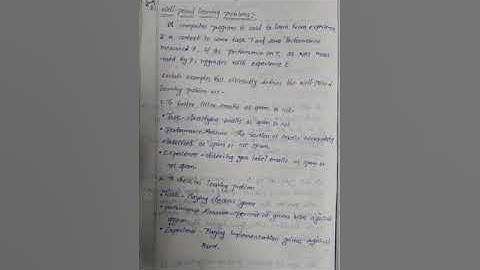 Well-posed learning problems
A computer program is said to learn from experience
E in context to some task T and some performance
measure P, if its performance on T, as was measu
red by P, upgrades with experience E.
Certain examples that efficiently defines the well-posed
learning problem are -
1. To better filter emails as spam or not.
• Task - classifying emails as spam or not.
• Performance measure - The fraction of emails accurately
classified as spam or not spam.
• Experience - observing you label emails as spam or
not spam.
2. A checkers learning problem
• Task - Playing checkers game
• performance Measure - percent of games won against
• Experience - Playing implementation games against